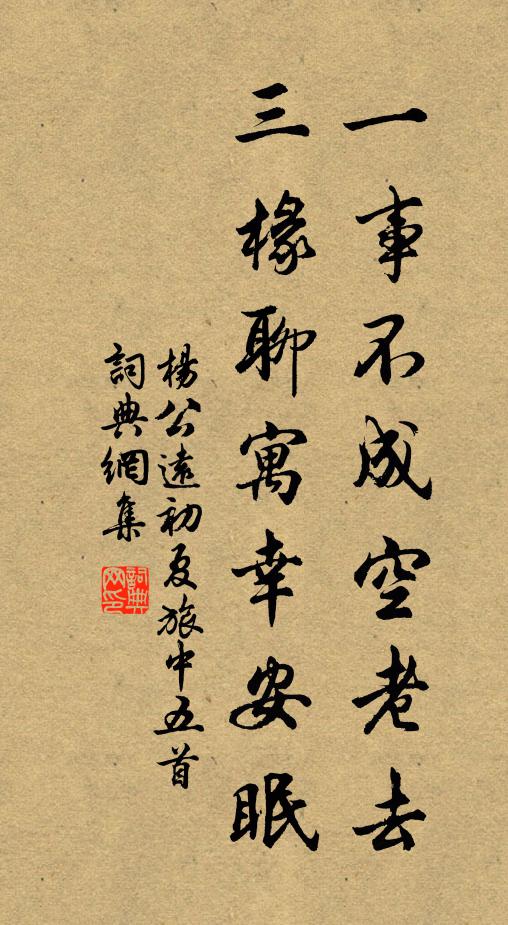 一事不成空老去
三椽聊寓幸安眠
楊公遠初夏旅中五首
詞典網集
詞典网印